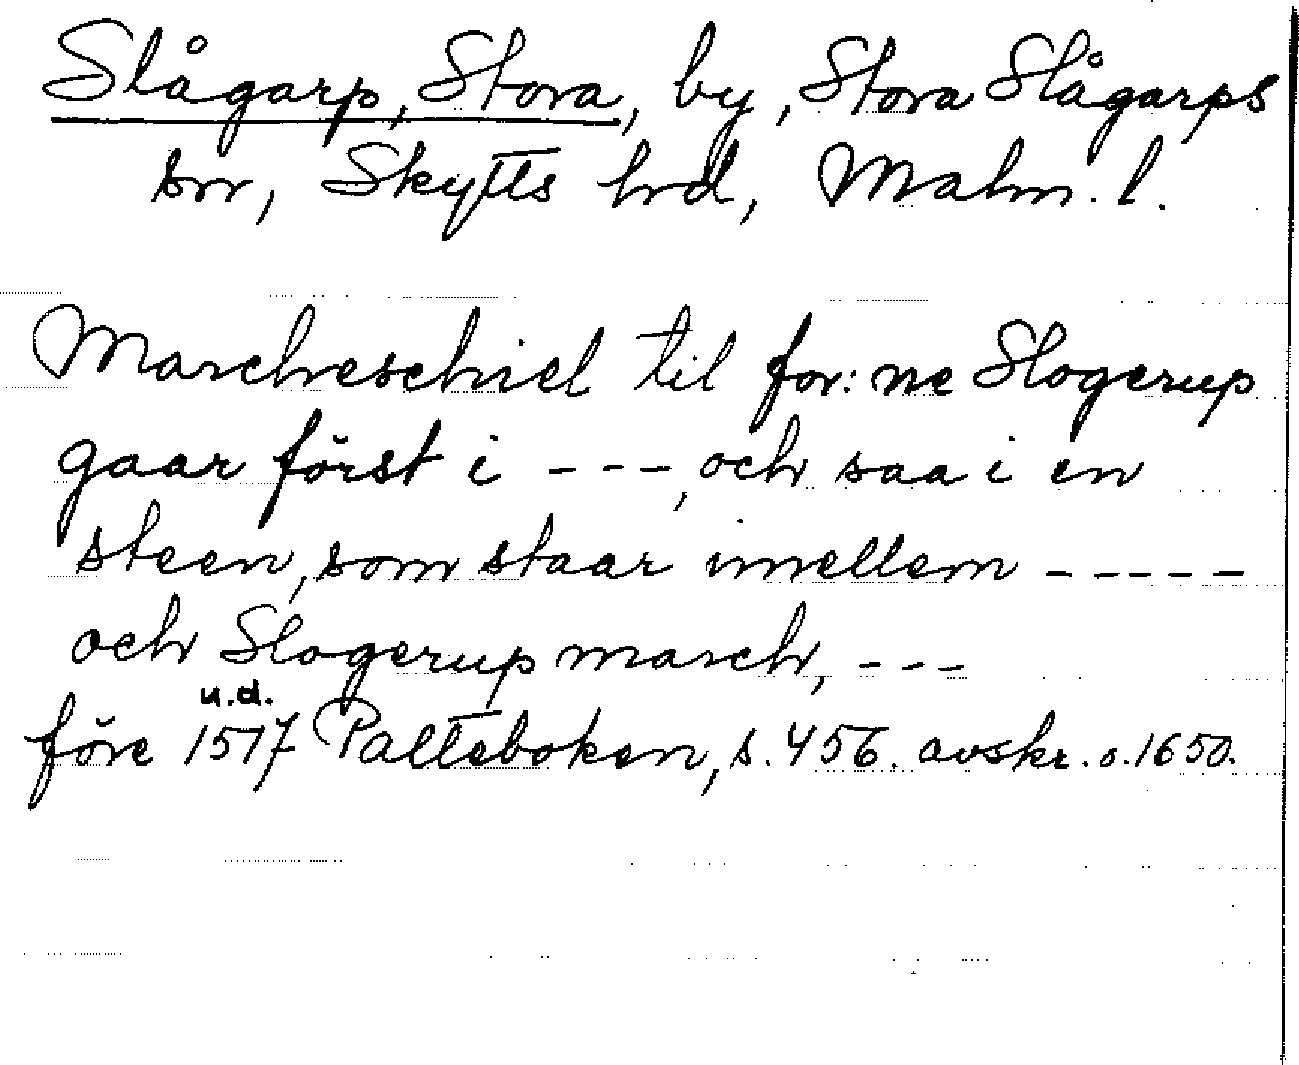 Slågarp, Stora, by, Stora Slågarps
sn, Skytts hd, Malm. l.
Marcheschiel til for: ne Slogerup
gaar först i - - -, och saa i en
steen, som staar imellem - - - - -
och Slogerup march, - - -
u.d.
före 1517 Palteboken, s. 456. avskr. o. 1650.